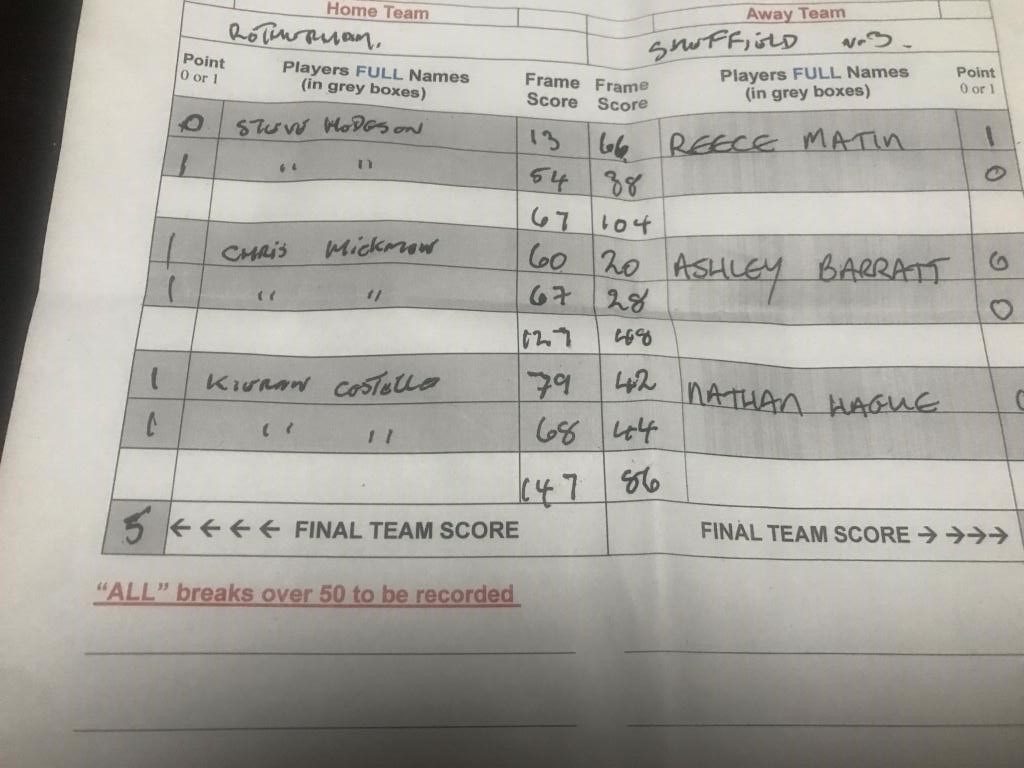 Home Team Away Team
Rotherham. SHEFFIELD No 3.
Point 0 or 1 Players FULL Names (in grey boxes) Frame Score Frame Score Players FULL Names (in grey boxes) Point 0 or 1
0 HODGSON 13 66 REECE MATIN 1
1 " " 54 38 0
67 104
1 CHRIS 60 20 ASHLEY BARRATT 0
1 " " 67 28 0
127 48
1 COSTELLO 79 42 NATHAN HAGUE
1 " " 68 44
147 86
5 ←←←← FINAL TEAM SCORE FINAL TEAM SCORE →→→→
"ALL" breaks over 50 to be recorded